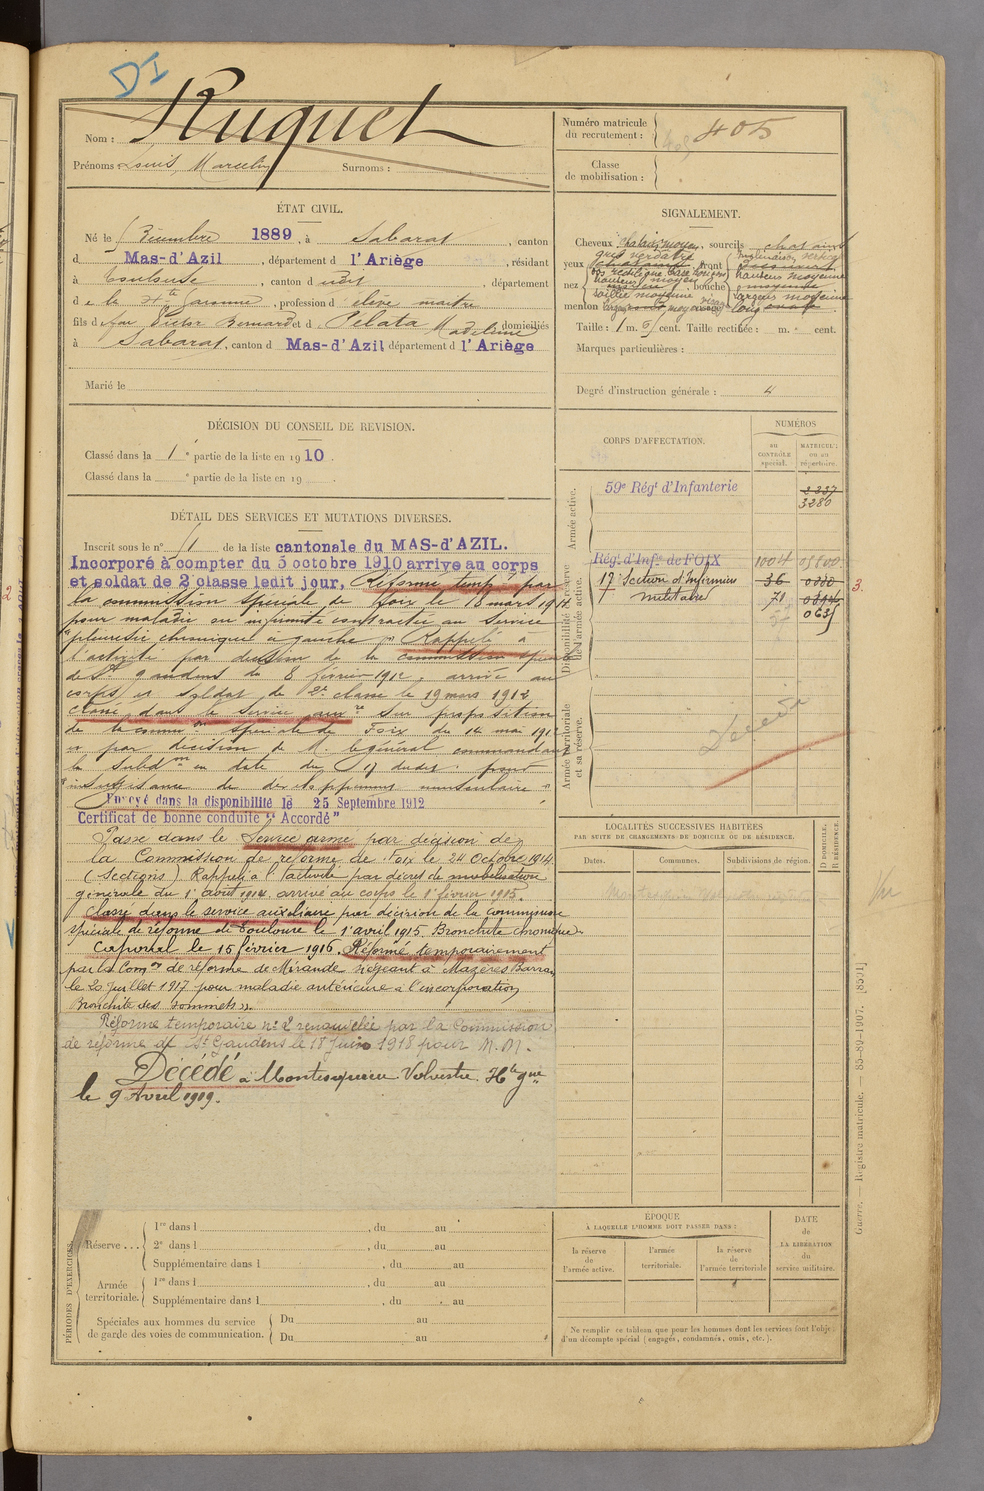 DI
Nom : Ruquet
Prénoms : Louis, Marcelin Surnoms :
Numéro matricule du recrutement : 405
Classe de mobilisation :
ÉTAT CIVIL.
Né le Décembre 1889, à Sabarat, canton
d Mas-d'Azil, département d l'Ariège, résidant
à Toulouse, canton d, département
d e la Hte Garonne, profession d élève maitre
fils d Victor Bernard et d Pelata Madeleine domiciliés
à Sabarat, canton d Mas-d'Azil département d l'Ariège
Marié le
SIGNALEMENT.
Cheveux chatains moyen, sourcils chatains
yeux gris verdâtre front inclinaison
hauteur moyenne
nez rectiligne base
hauteur moyen bouche moyenne
saillie moyenne largeur moyenne
menton long
Taille : 1 m. cent. Taille rectifiée : m. cent.
Marques particulières :
Degré d'instruction générale : 4
DÉCISION DU CONSEIL DE REVISION.
Classé dans la 1e partie de la liste en 1910.
Classé dans la e partie de la liste en 19
DÉTAIL DES SERVICES ET MUTATIONS DIVERSES.
Inscrit sous le n° de la liste cantonale du MAS-d'AZIL.
Incorporé à compter du 5 octobre 1910 arrive au corps
et soldat de 2e classe ledit jour, Réformé tempre par
la commission spéciale de Foix le 18 mars 1911
pour maladie ou infirmité contractée au service
"pleurésie chronique a gauche". Rappelé à
l'activité par décision de la commission spéciale
de St Gaudens du 8 février 1912, arrivé au
corps et soldat de 2e classe le 19 mars 1912
Classé dans le service auxre sur proposition
de la common spéciale de Foix du 14 mai 1912
et par décision de M. le général commandant
la Subdon en date du 17 dudit pour
"insuffisance de développement musculaire"
Envoyé dans la disponibilité le 25 Septembre 1912
Certificat de bonne conduite "Accordé"
Passé dans le Service armé par décision de
la Commission de réforme de Foix le 24 Octobre 1914.
(Sections) Rappelé à l'activité par décret de mobilisation
générale du 1er août 1914. arrivé au corps le 1er février 1915.
Classé dans le service auxiliaire par décision de la commission
spéciale de réforme de Toulouse le 1er avril 1915. Bronchite chronique.
Caporal le 15 février 1916. Réformé temporairement
par la Comon de réforme de Mirande siégeant à Mazères Barran
le 20 juillet 1917 pour maladie antérieure à l'incorporation
Bronchite des sommets ».
Réforme temporaire n° 2 renouvelée par la Commission
de réforme de St Gaudens le 18 Juin 1918 pour M. M.
Décédé à Montesquieu Volvestre Hte Gne
le 9 Avril 1919.
CORPS D'AFFECTATION.
NUMÉROS
AU CONTRÔLE spécial.
MATRICULE ou au répertoire.
Armée active.
59e Régt d'Infanterie 2337
3280
Disponibilité et réserve de l'armée active.
Régt d'Infie de FOIX 1004 05800
17e Section d'Infirmiers 36
militaires 71
3.
Armée territoriale et sa réserve.
Décédé
LOCALITÉS SUCCESSIVES HABITÉES
PAR SUITE DE CHANGEMENTS DE DOMICILE OU DE RÉSIDENCE.
Dates. Communes. Subdivisions de région. D DOMICILE. R RÉSIDENCE.
PÉRIODES D'EXERCICES.
Réserve ... 1re dans l , du au
2e dans l , du au
Supplémentaire dans l , du au
Armée territoriale. 1re dans l , du au
Supplémentaire dans l , du au
Spéciales aux hommes du service de garde des voies de communication. Du au
Du au
ÉPOQUE
À LAQUELLE L'HOMME DOIT PASSER DANS :
la réserve de l'armée active. l'armée territoriale. la réserve de l'armée territoriale
DATE de LA LIBÉRATION du service militaire.
Ne remplir ce tableau que pour les hommes dont les services font l'objet
d'un décompte spécial (engagés, condamnés, omis, etc.).
Guerre. — Registre matricule. — 85-89-1907. [8591]